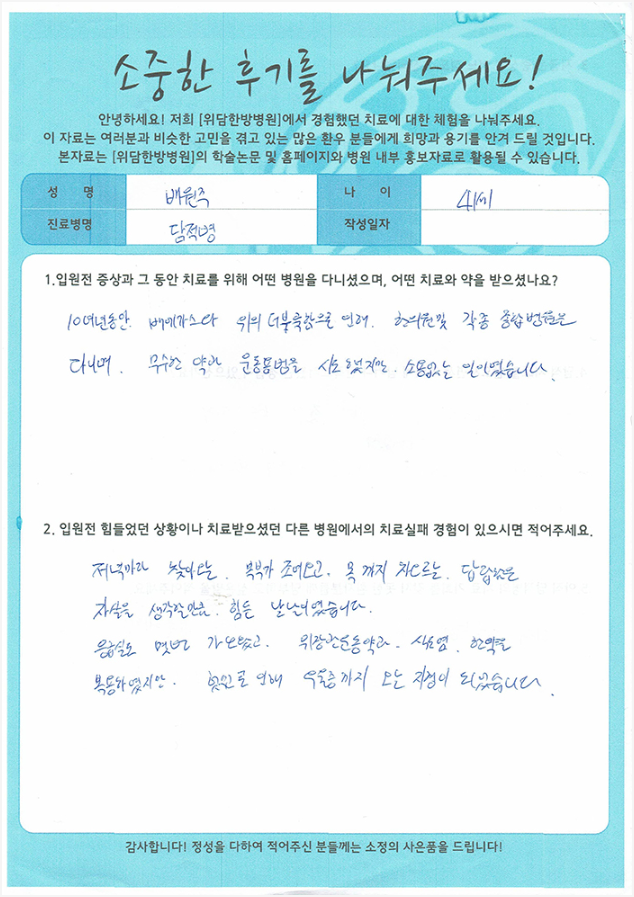 소중한 후기를 나눠주세요!
안녕하세요! 저희 [위담한방병원]에서 경험했던 치료에 대한 체험을 나눠주세요.
이 자료는 여러분과 비슷한 고민을 겪고 있는 많은 환우 분들에게 희망과 용기를 안겨 드릴 것입니다.
본자료는 [위담한방병원]의 학술논문 및 홈페이지와 병원 내부 홍보자료로 활용될 수 있습니다.
성 명 배원주 나 이 41세
진료병명 담적병 작성일자
1.입원전 증상과 그 동안 치료를 위해 어떤 병원을 다니셨으며, 어떤 치료와 약을 받으셨나요?
10여년동안 배에가스와 위의 더부룩함으로 인해. 한의원및 각종 종합병원을
다니며. 무수한 약과 운동용법을 시도했지만. 소용없는 일이였습니다.
2. 입원전 힘들었던 상황이나 치료받으셨던 다른 병원에서의 치료실패 경험이 있으시면 적어주세요.
저녁마다 찾아오는. 복부가 조여오고. 목까지 차오르는. 답답함은
자살을 생각할만큼. 힘든 날들이였습니다.
응급실도 몇번 가보았고. 위장관운동약과. 한약을
복용하였지만. 우울증까지 오는 지경이 되었습니다.
감사합니다! 정성을 다하여 적어주신 분들께는 소정의 사은품을 드립니다!